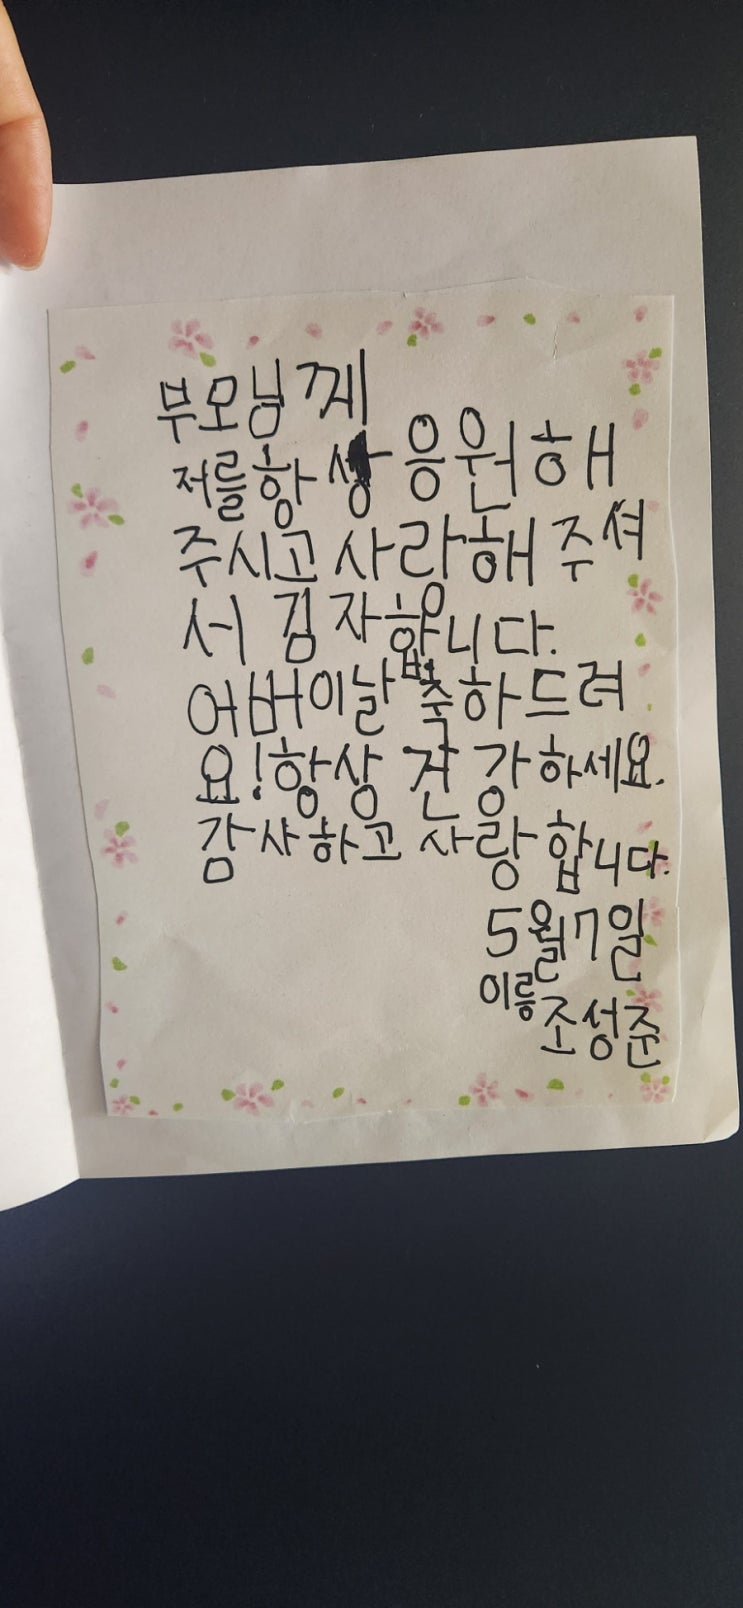 부모님께
저를 항상 응원해
주시고 사랑해 주셔
서 김자합니다.
어버이날 축하드려
요! 항상 건강하세요.
감사하고 사랑합니다.
5월 7일
이름 조성준